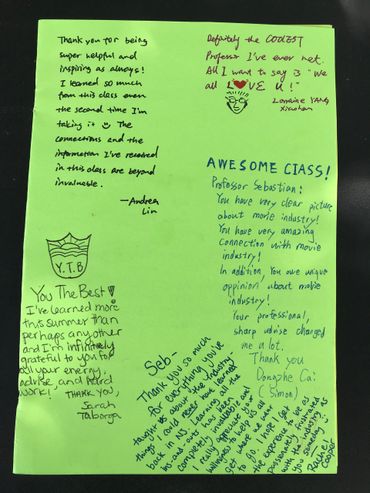 Thank you for being
super helpful and
inspiring as always!
I learned so much
from this class even
the second time I'm
taking it
The
connections and the
information I've received
in this class are beyond
invaluable.
—Andrea
Lin
Definitely the COOLEST
Professor I've ever met.
All I want to say is "We
all L♥VE U!"
Lorraine YANG
AWESOME CLASS!
Professor Sebastian:
You have very clear picture
about movie industry!
You have very amazing
connection with movie
industry!
In addition, You owe unique
oppinion about movie
industry!
Your professional,
sharp advise charged
me a lot.
Thank you
Dongzhe Cai
(Simon)
Y.T.B
You The Best!
I've learned more
this summer than
perhaps any other
and I'm infinitely
grateful to you for
all your energy,
advise, and hard
work!
THANK YOU,
Sarah
Taborga
Seb-
Thank you so much
for everything you've
taught us about the industry-
things I could never have learned
back in NS. Learning all the
ins and outs has been
completely invaluable and
I really appreciate your
willingness to help us all
get where we want
to go. I hope I get
the experience to be as
passionately frustrated
with the industry as
you someday
Rachel
Cooper